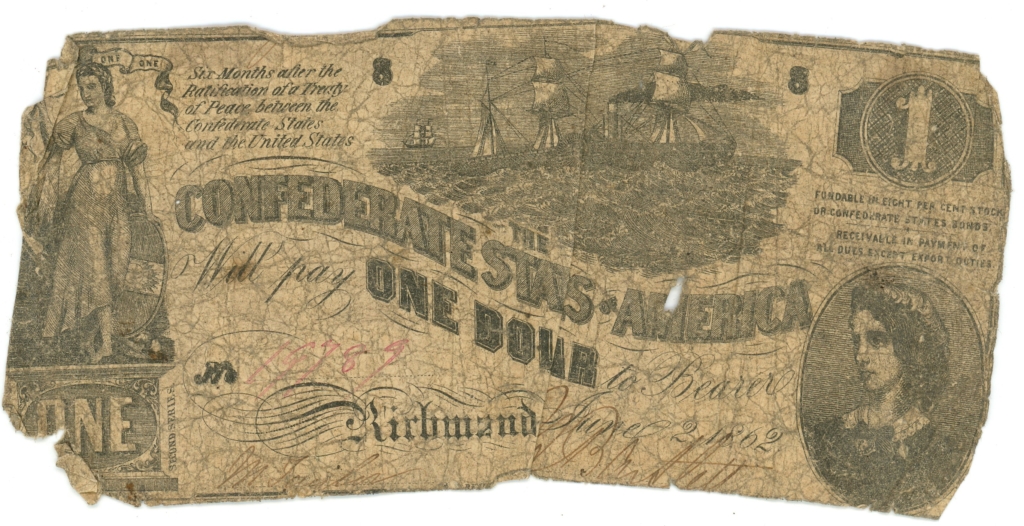 ONE ONE
Six Months after the
Ratification of a Treaty
of Peace between the
Confederate States
and the United States
8
8
1
FUNDABLE IN EIGHT PER CENT STOCK
OR CONFEDERATE STATES BONDS.
RECEIVABLE IN PAYMENT OF
ALL DUES EXCEPT EXPORT DUTIES.
THE
CONFEDERATE STAS OF AMERICA
Will pay ONE
to Bearer
No
Richmond June 2, 1862
ONE